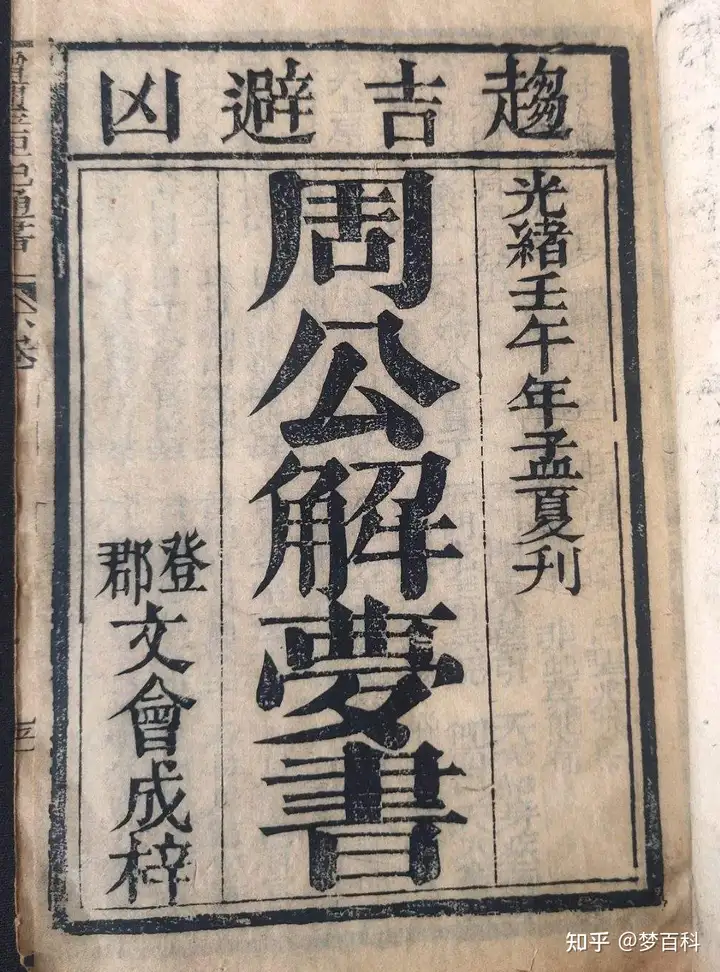 趨吉避凶
光緒壬午年孟夏刊
周公解夢書
登郡文會成梓
知乎 @梦百科